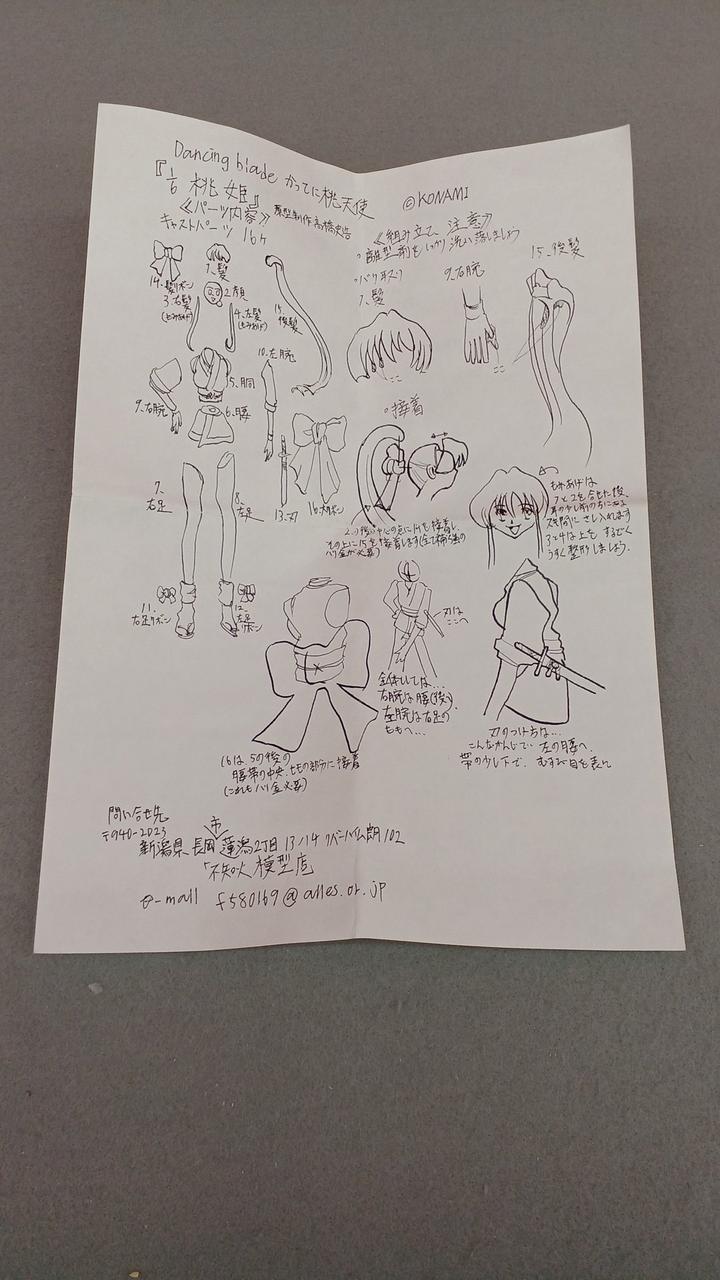 Dancing blade かってに桃天使
©KONAMI
『1/6 桃姫』
≪パーツ内容≫
原型制作 高橋
キャストパーツ 16ヶ
14.髪リボン
1.髪
2.顔
3.右髪
4.左髪
15.後髪
5.胴
6.腰
9.右腕
10.左腕
7.右足
8.左足
13.刀
16.大リボン
11.右足リボン
12.左足リボン
≪組み立て 注意≫
・離型剤をしっかり洗い落しましょう
・バリ
1.髪
9.右腕
15.後髪
ここ
ここ
・接着
その上に15を接着します(全て補強の
バリ金が必要)
もみあげは
1と2を合せた後、
すき間にさし入れます
3と4は上をするどく
うすく整形しましょう。
刀は
ここへ
全体としては…
右腕は腰(後)
左腕は右足の
ももへ…
16は、5の後の
腰帯の中央、
の部分に接着
(これもバリ金必要)
刀のつけ方は…
こんなかんじで 左の腰へ、
帯の少し下で、むすび目を表に
問い合せ先
〒940-2023
新潟県 長岡市 蓮潟2丁目13ノ14 リバーハイム朗102
「不知火模型店
e-mail f580169@alles.or.jp